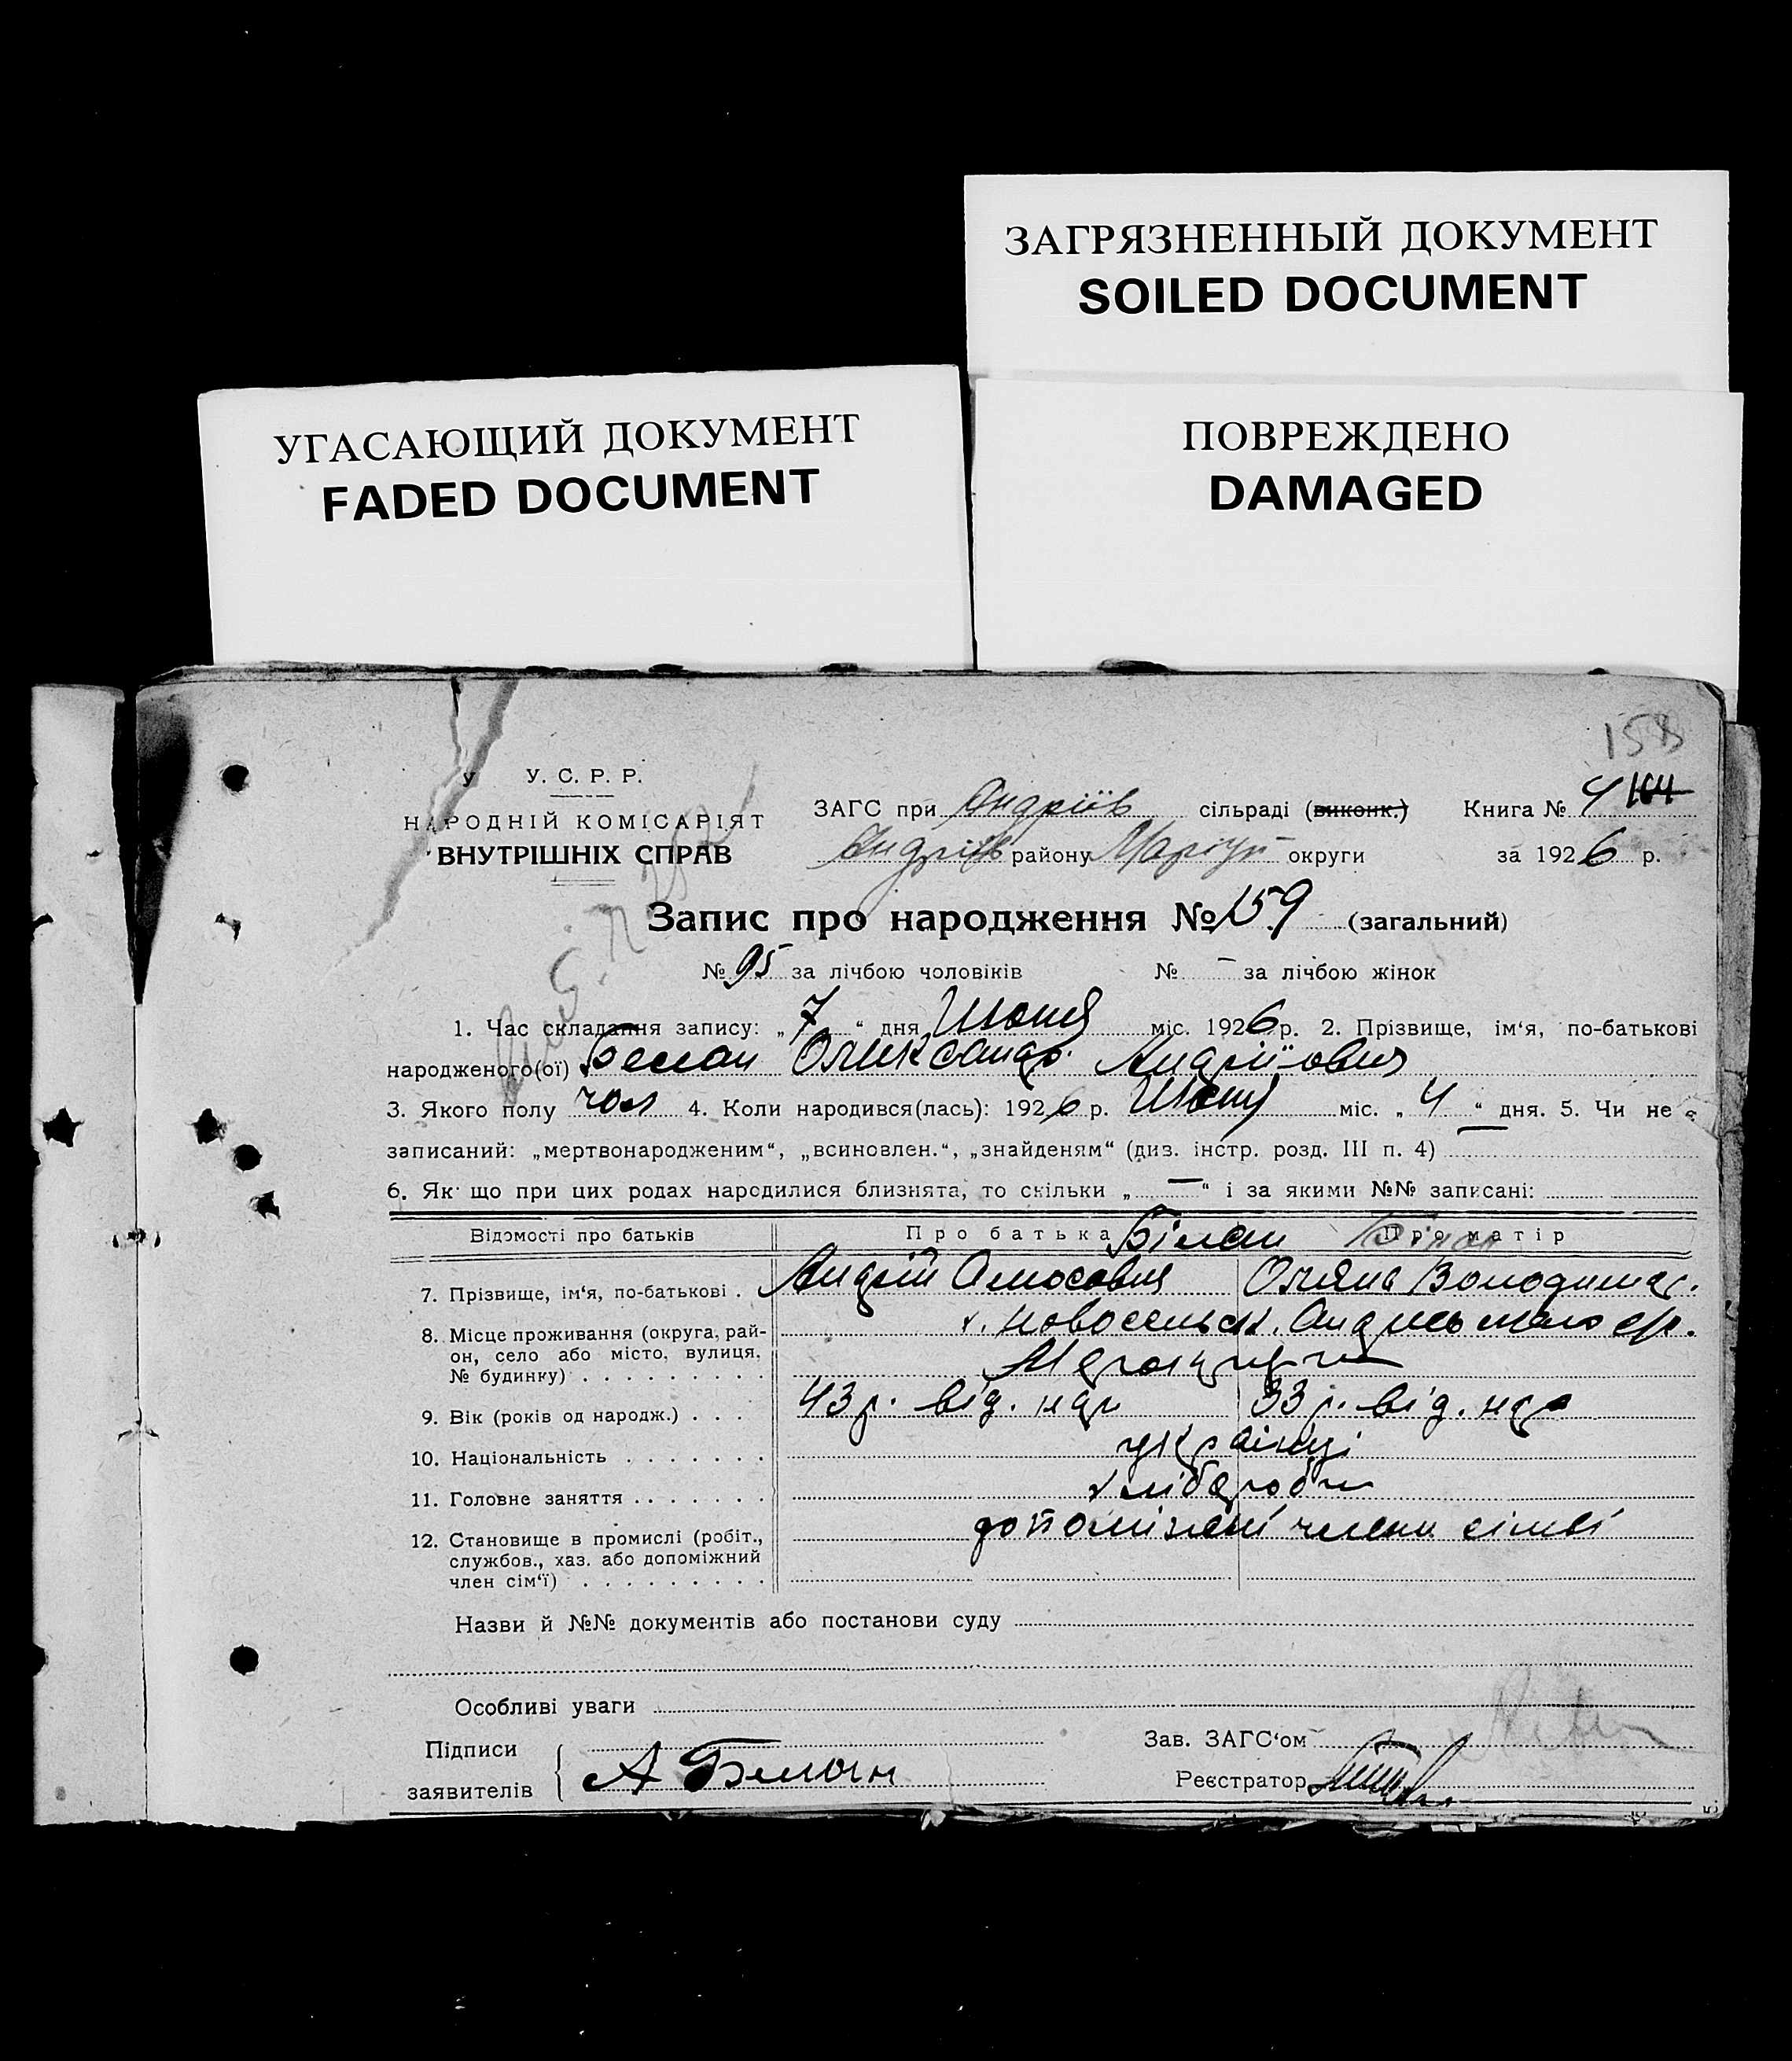 ЗАГРЯЗНЕННЫЙ ДОКУМЕНТ
SOILED DOCUMENT
УГАСАЮЩИЙ ДОКУМЕНТ
FADED DOCUMENT
ПОВРЕЖДЕНО
DAMAGED
158
У. С. Р. Р.
НАРОДНІЙ КОМІСАРІЯТ
ВНУТРІШНІХ СПРАВ
ЗАГС при Андріїв сільраді (виконк.) Книга № 4 164
Андріїв району Маріуп округи за 1926 р.
Запис про народження № 159 (загальний)
№ 95 за лічбою чоловіків № — за лічбою жінок
1. Час складання запису: „7“ дня Июня міс. 1926 р. 2. Прізвище, ім‘я, по-батькові
народженого(ої) Белан Олександр. Андрійович
3. Якого полу чол 4. Коли народився(лась): 1926 р. Июня міс. „4“ дня. 5. Чи не є
записаний: „мертвонародженим“, „всиновлен.“, „знайденям“ (див. інстр. розд. III п. 4) —
6. Як що при цих родах народилися близнята, то скільки „—“ і за якими №№ записані:
Відомості про батьків Про батька Білан Про матір Білан
7. Прізвище, ім‘я, по-батькові . Андрій Амосович Оляна Володимир.
8. Місце проживання (округа, рай-
он, село або місто, вулиця,
№ будинку) х. Новосельск.
9. Вік (років од народж.) 43 р. від. нар 33 р. від. нар
10. Національність українці
11. Головне заняття хлібороби
12. Становище в промислі (робіт.,
службов., хаз. або допоміжний
член сім‘ї) допоміжні члени сімьї
Назви й №№ документів або постанови суду
Особливі уваги
Підписи
заявителів А Белан
Зав. ЗАГС‘ом
Реєстратор